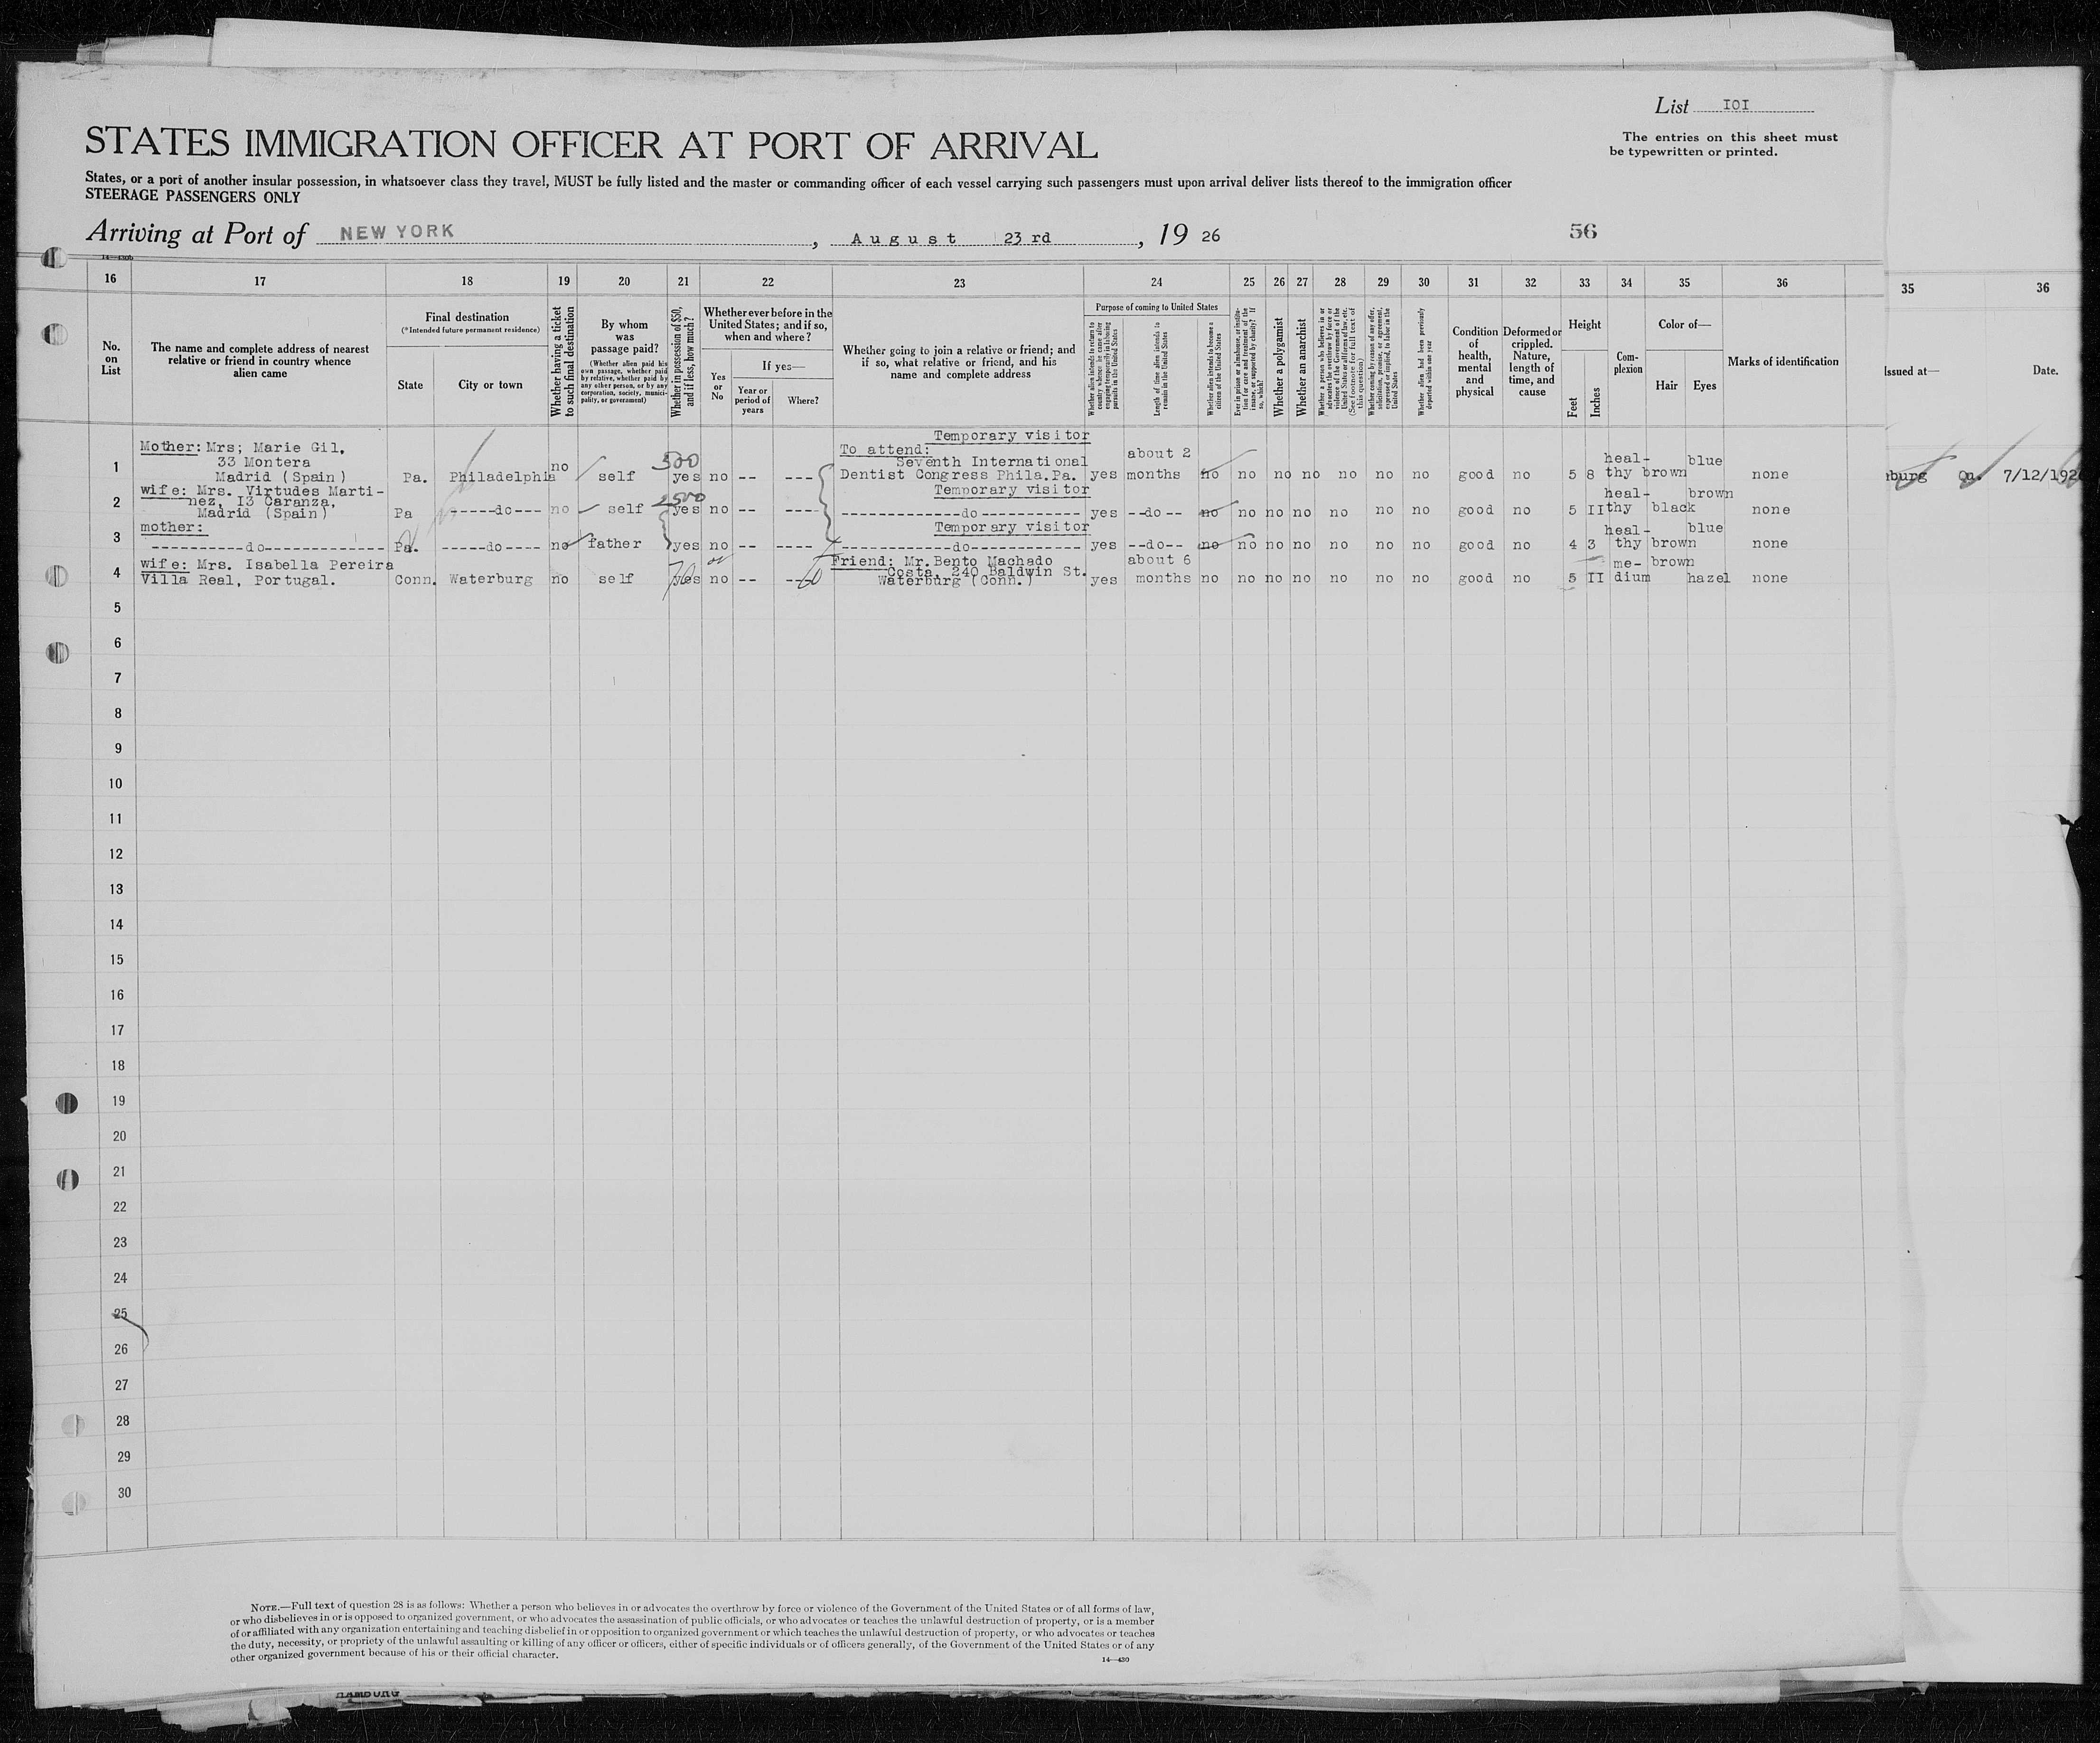 List IOI
The entries on this sheet must
be typewritten or printed.
STATES IMMIGRATION OFFICER AT PORT OF ARRIVAL
States, or a port of another insular possession, in whatsoever class they travel, MUST be fully listed and the master or commanding officer of each vessel carrying such passengers must upon arrival deliver lists thereof to the immigration officer
STEERAGE PASSENGERS ONLY
Arriving at Port of NEW YORK, August 23rd, 19 26
56
16 17 18 19 20 21 22 23 24 25 26 27 28 29 30 31 32 33 34 35 36
No. on List
The name and complete address of nearest
relative or friend in country whence
alien came
Final destination
(*Intended future permanent residence)
State
City or town
Whether having a ticket
to such final destination
By whom
was
passage paid?
(Whether alien paid his
own passage, whether paid
by relative, whether paid by
any other person, or by any
corporation, society, munici-
pality, or government)
Whether in possession of $50,
and if less, how much?
Whether ever before in the
United States; and if so,
when and where?
Yes
or
No
If yes—
Year or
period of
years
Where?
Whether going to join a relative or friend; and
if so, what relative or friend, and his
name and complete address
Purpose of coming to United States
Whether alien intends to return to
country whence he came after
engaging temporarily in laboring
pursuits in the United States
Length of time alien intends to
remain in the United States
Whether alien intends to become a
citizen of the United States
Ever in prison or almshouse, or institu-
tion for care and treatment of the
insane, or supported by charity? If
so, which?
Whether a polygamist
Whether an anarchist
Whether a person who believes in or
advocates the overthrow by force or
violence of the Government of the
United States or all forms of law, etc.
(See footnote for full text of
this question)
Whether coming by reason of any offer,
solicitation, promise, or agreement,
expressed or implied, to labor in the
United States
Whether alien had been previously
deported within one year
Condition
of
health,
mental
and
physical
Deformed or
crippled.
Nature,
length of
time, and
cause
Height
Feet
Inches
Com-
plexion
Color of—
Hair
Eyes
Marks of identification
1 Mother: Mrs; Marie Gil,
33 Montera
Madrid (Spain) Pa. Philadelphia no self 500 yes no -- ---
Temporary visitor
To attend:
Seventh International
Dentist Congress Phila.Pa. yes about 2 months no no no no no no no good no 5 8 heal-thy brown blue none
2 wife: Mrs. Virtudes Marti-
nez, I3 Caranza,
Madrid (Spain) Pa -----do--- no self yes no -- ----
Temporary visitor
--------------do------------ yes --do-- no no no no no no no good no 5 II heal-thy black brown none
3 mother:
-----------do-------------- Pa. -----do---- no father yes no -- ----
Temporary visitor
-------------do------------- yes --do-- no no no no no no no good no 4 3 heal-thy brown blue none
4 wife: Mrs. Isabella Pereira
Villa Real, Portugal. Conn. Waterburg no self yes no -- ---
Friend: Mr.Bento Machado
Costa, 240 Baldwin St.
Waterburg (Conn.) yes about 6 months no no no no no no no good no 5 II me-dium brown hazel none
5
6
7
8
9
10
11
12
13
14
15
16
17
18
19
20
21
22
23
24
25
26
27
28
29
30
NOTE.—Full text of question 28 is as follows: Whether a person who believes in or advocates the overthrow by force or violence of the Government of the United States or of all forms of law,
or who disbelieves in or is opposed to organized government, or who advocates the assassination of public officials, or who advocates or teaches the unlawful destruction of property, or is a member
of or affiliated with any organization entertaining and teaching disbelief in or opposition to organized government or which teaches the unlawful destruction of property, or who advocates or teaches
the duty, necessity, or propriety of the unlawful assaulting or killing of any officer or officers, either of specific individuals or of officers generally, of the Government of the United States or of any
other organized government because of his or their official character.
14—430
35 36
Issued at— Date.
burg 7/12/192
HAMBURG